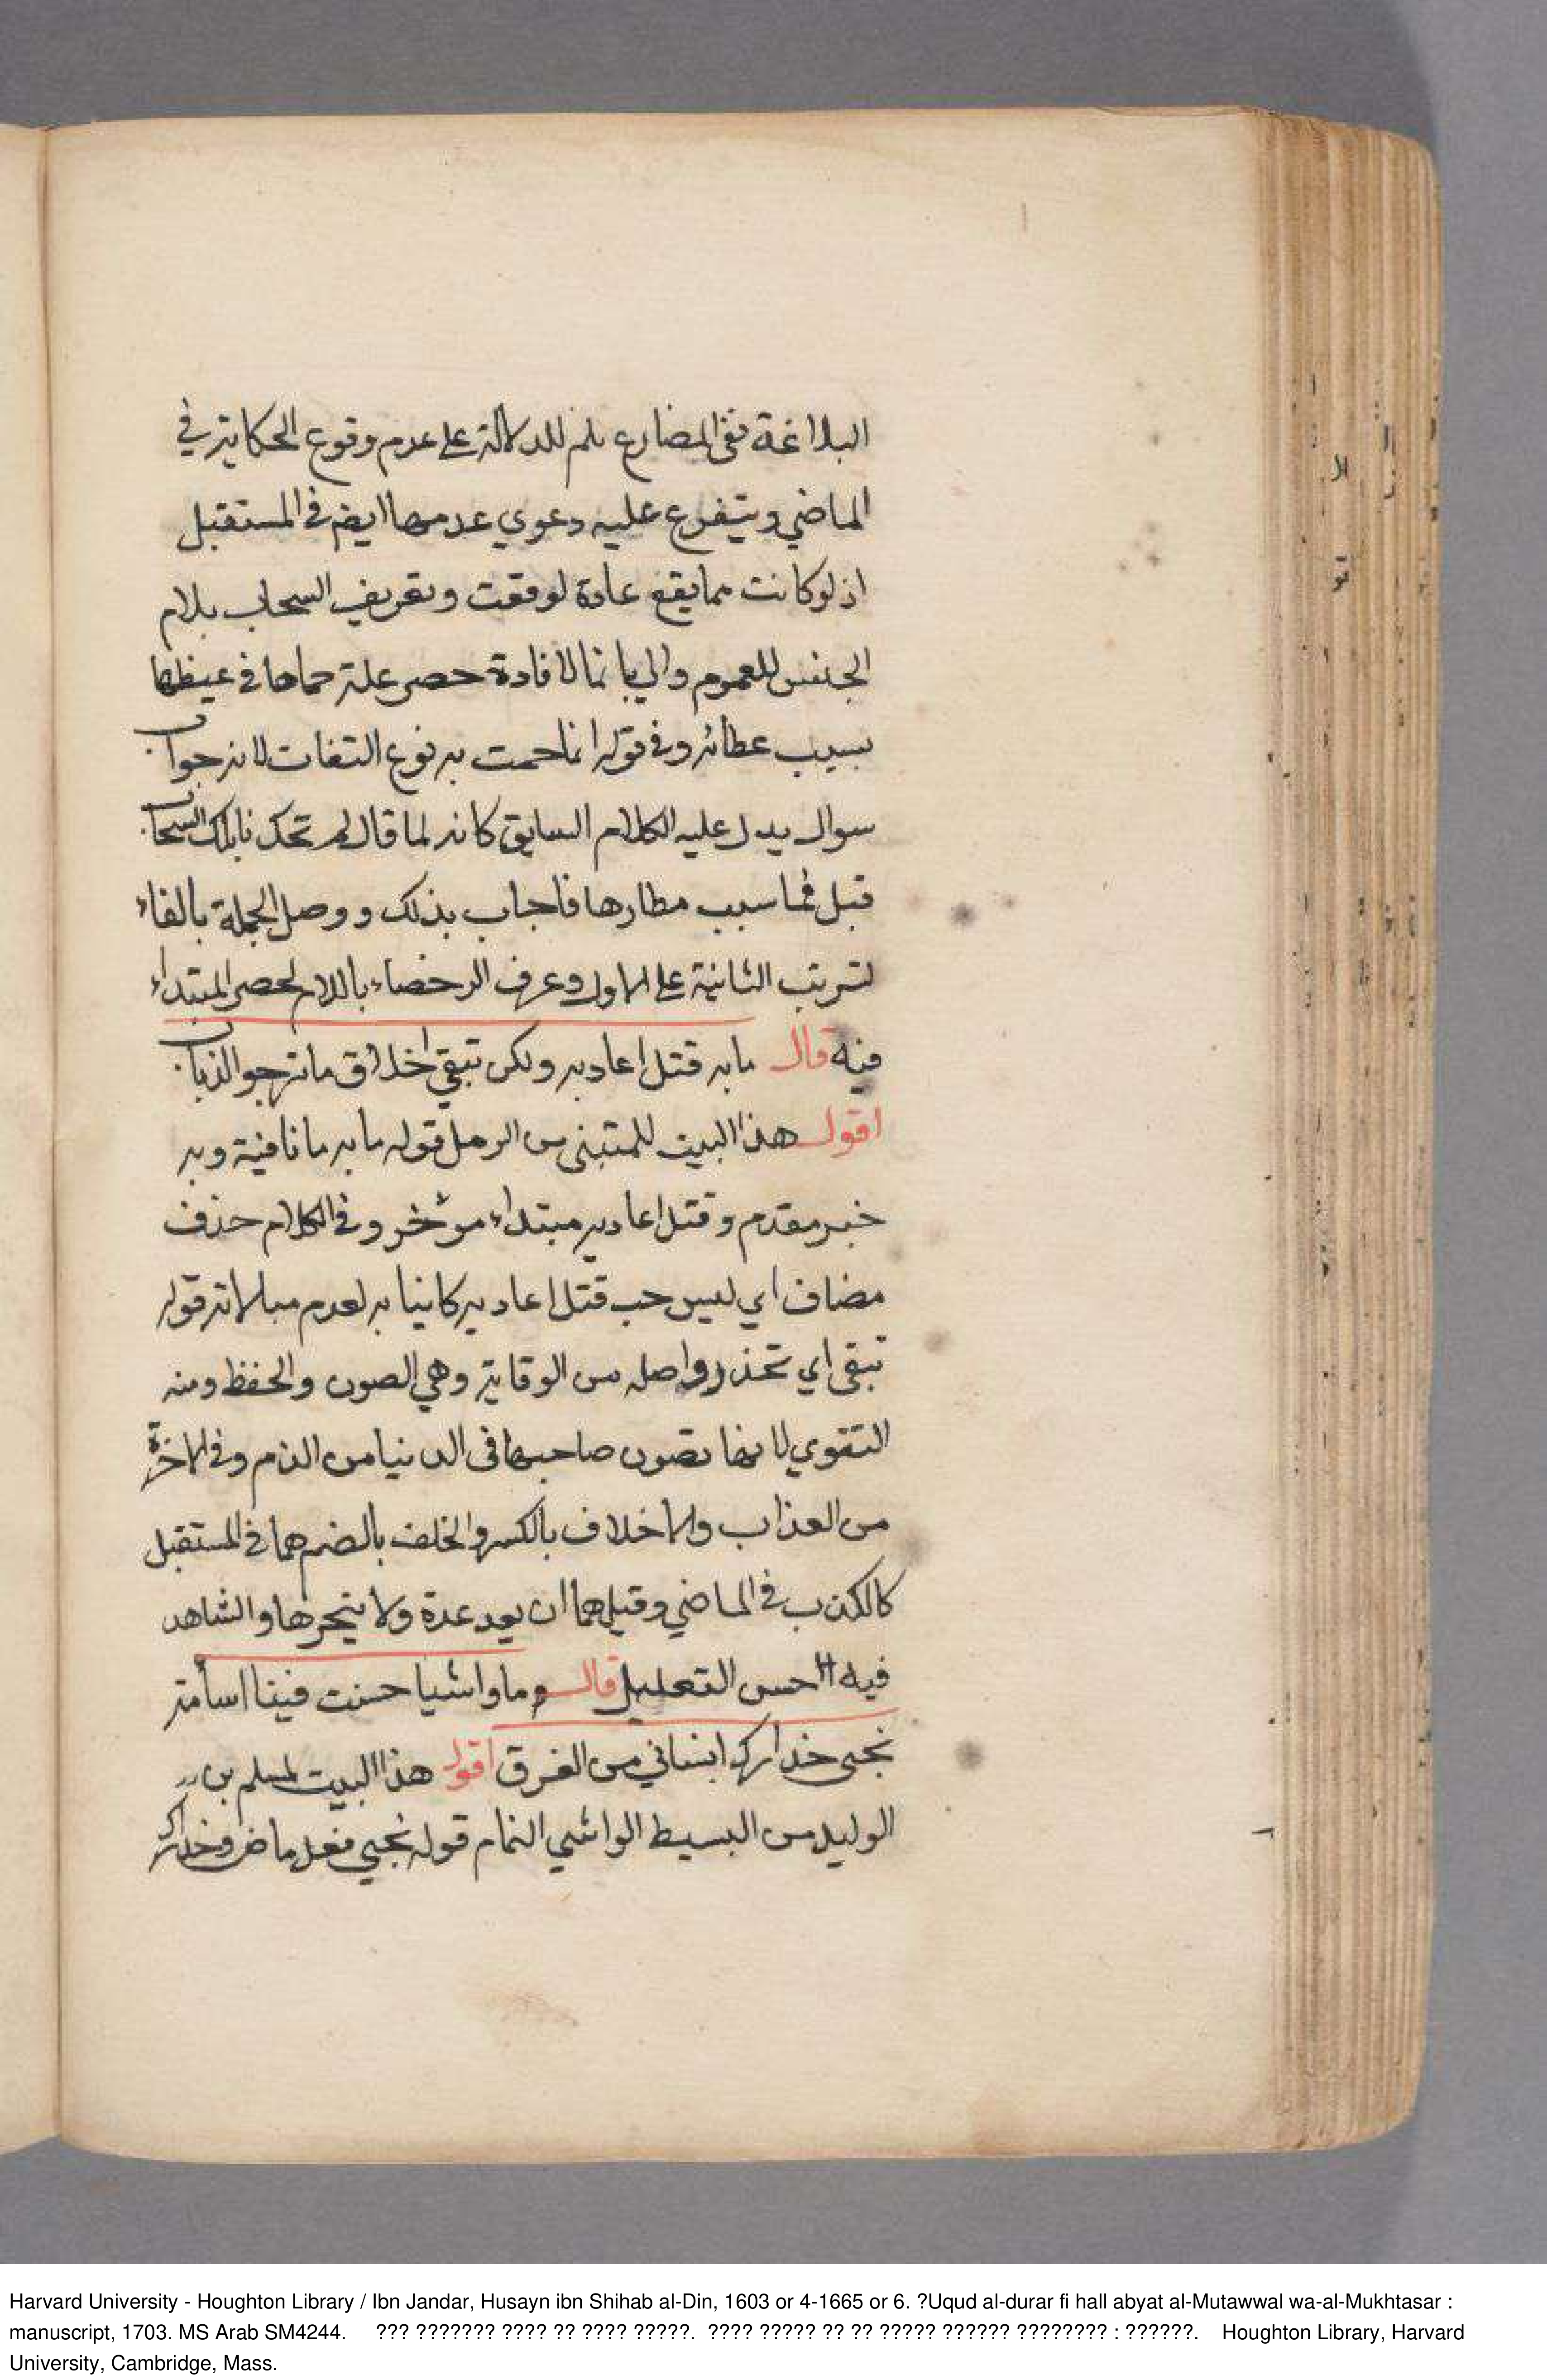 البلاغة نفى المضارع بلم للدلالة على عدم وقوع الحكاية في
الماضي ويتفرع عليه دعوي عدمها ايضم في المستقبل
اذ لو كانت مما يقع عادة لوقعت وتعريف السحاب بلام
الجنس للعموم والى بانما لافادة حصر علة حماها في غيظها
بسبب عطائه وفي قوله انما حمت به نوع التفات لانه جواب
سوال يدل عليه الكلام السابق كانه لما قال لم تحك نايلك السحاب
قيل فما سبب مطارها فاجاب بذلك ووصل الجملة بالفاء
لترتب الثانية على الاولى وعرف الرحضاء باللام لحصر المبتداء
فيه قال ما به قتل اعاديه ولكن تبقى اخلاق ما ترجو الذياب
اقول هذا البيت للمتبنى من الرمل قوله ما به ما نافية وبه
خبر مقدم وقتل اعاديه مبتداء موٴخر وفي الكلام حذف
مضاف اي ليس حب قتل اعاديه كاينا به لعدم مبالاته قوله
تبقى اي تحذر واصله من الوقاية وهي الصون والحفظ ومنه
التقوي لانها تصون صاحبها في الدنيا من الذم وفي الاخرة
من العذاب والاخلاف بالكسر والخلف بالضم هما في المستقبل
كالكذب في الماضي وقيل هما ان يعد عدة ولا ينجزها والشاهد
فيه حسن التعليل قال وما واشيا حسنت فينا اساٴته
نجى حذارك انساني من الغرق اقول هذا البيت لمسلم بن
الوليد من البسيط الواشي النمام قوله نجي فعل ماض وحذارك
Harvard University - Houghton Library / Ibn Jandar, Husayn ibn Shihab al-Din, 1603 or 4-1665 or 6. ?Uqud al-durar fi hall abyat al-Mutawwal wa-al-Mukhtasar :
manuscript, 1703. MS Arab SM4244. ??? ??????? ???? ?? ???? ?????. ???? ????? ?? ?? ????? ?????? ???????? : ??????. Houghton Library, Harvard
University, Cambridge, Mass.